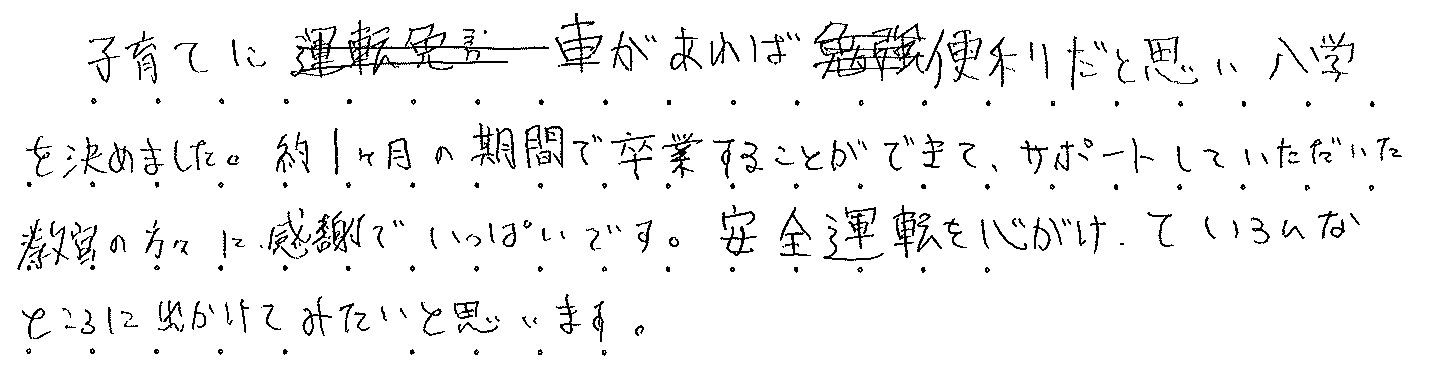 子育てに車があれば便利だと思い入学
を決めました。約1ヶ月の期間で卒業することができて、サポートしていただいた
教習の方々に感謝でいっぱいです。安全運転を心がけ.ていろんな
ところに出かけてみたいと思います。